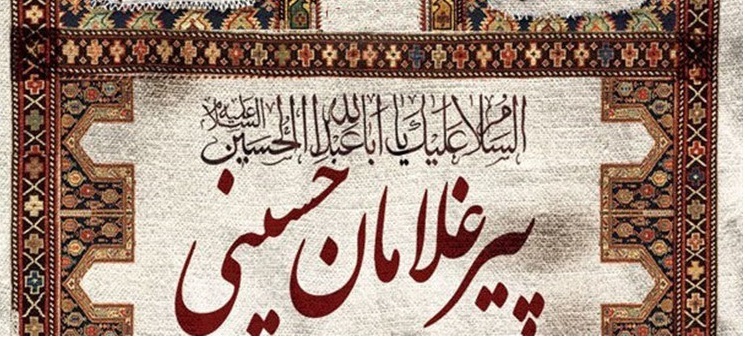 السلام علیك یا اباعبدالله الحسین علیه السلام
پیرغلامان حسینی